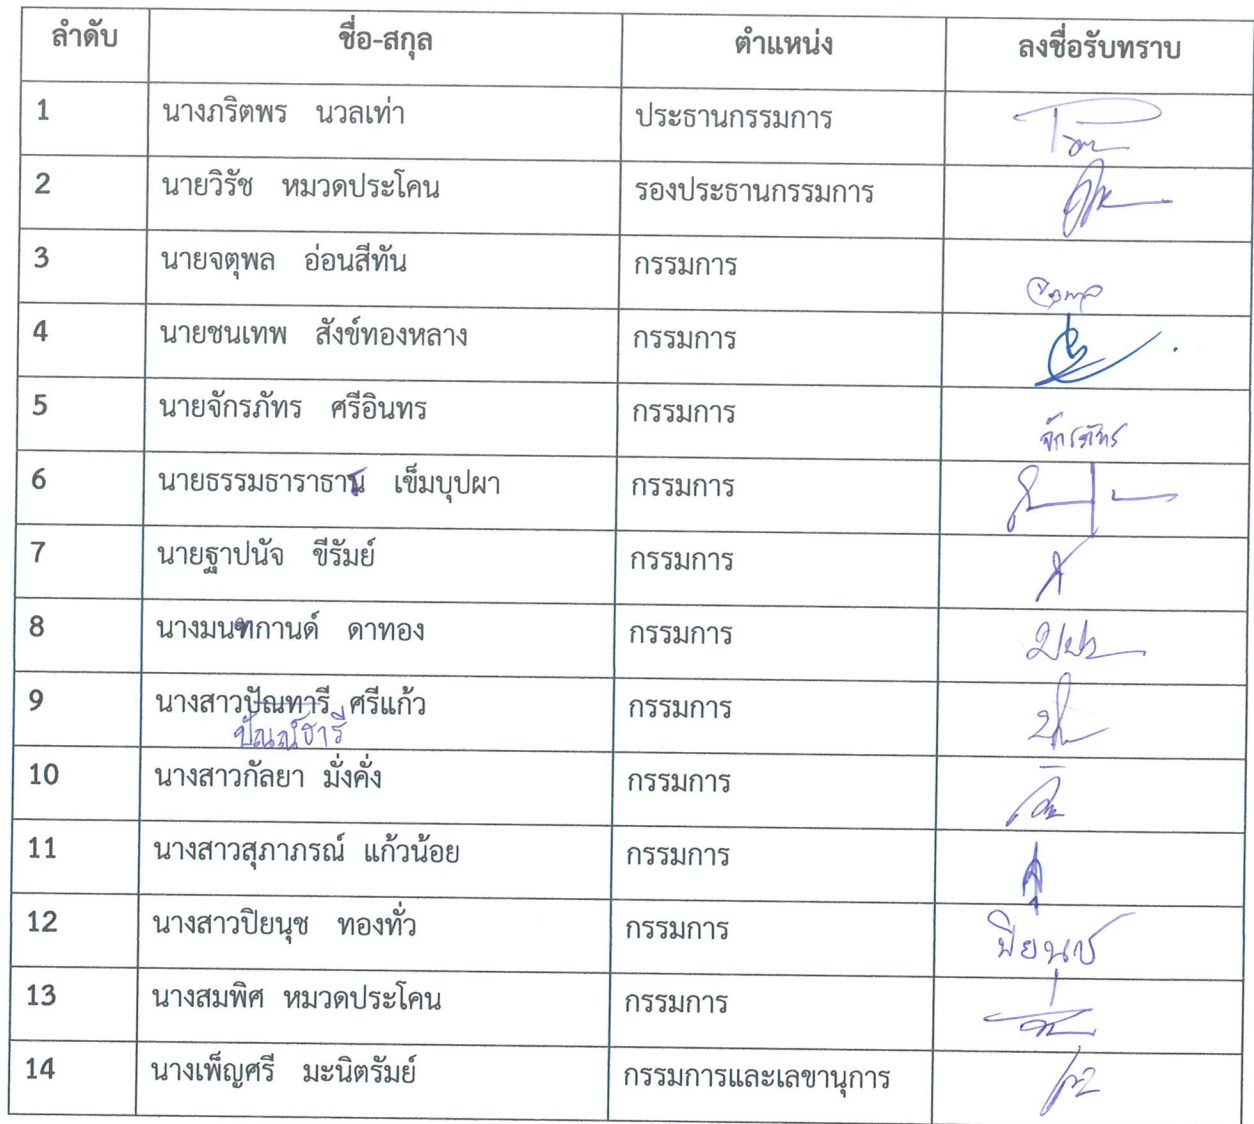 ลำดับ ชื่อ-สกุล ตำแหน่ง ลงชื่อรับทราบ
1 นางภริตพร นวลเท่า ประธานกรรมการ
2 นายวิรัช หมวดประโคน รองประธานกรรมการ
3 นายจตุพล อ่อนสีทัน กรรมการ จตุพล
4 นายชนเทพ สังข์ทองหลาง กรรมการ
5 นายจักรภัทร ศรีอินทร กรรมการ จักรภัทร
6 นายธรรมธาราธาร เข็มบุปผา กรรมการ
7 นายฐาปนัจ ขีรัมย์ กรรมการ
8 นางมนฑกานด์ ดาทอง กรรมการ
9 นางสาวปัณฑารี ศรีแก้ว กรรมการ
ปัณณ์ธารี
10 นางสาวกัลยา มั่งคั่ง กรรมการ
11 นางสาวสุภาภรณ์ แก้วน้อย กรรมการ
12 นางสาวปิยนุช ทองทั่ว กรรมการ ปิยนุช
13 นางสมพิศ หมวดประโคน กรรมการ
14 นางเพ็ญศรี มะนิตรัมย์ กรรมการและเลขานุการ